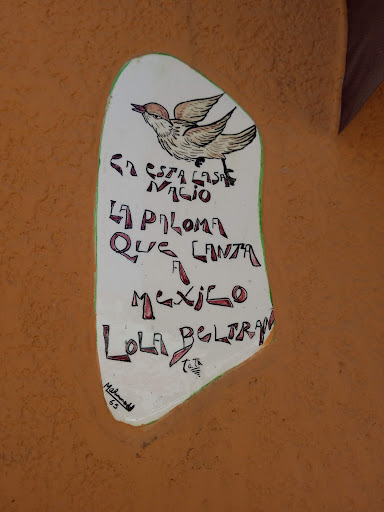 EN ESTA CASA
NACIO
LA PALOMA
QUE CANTA
A
MEXICO
LOLA BELTRAN
65